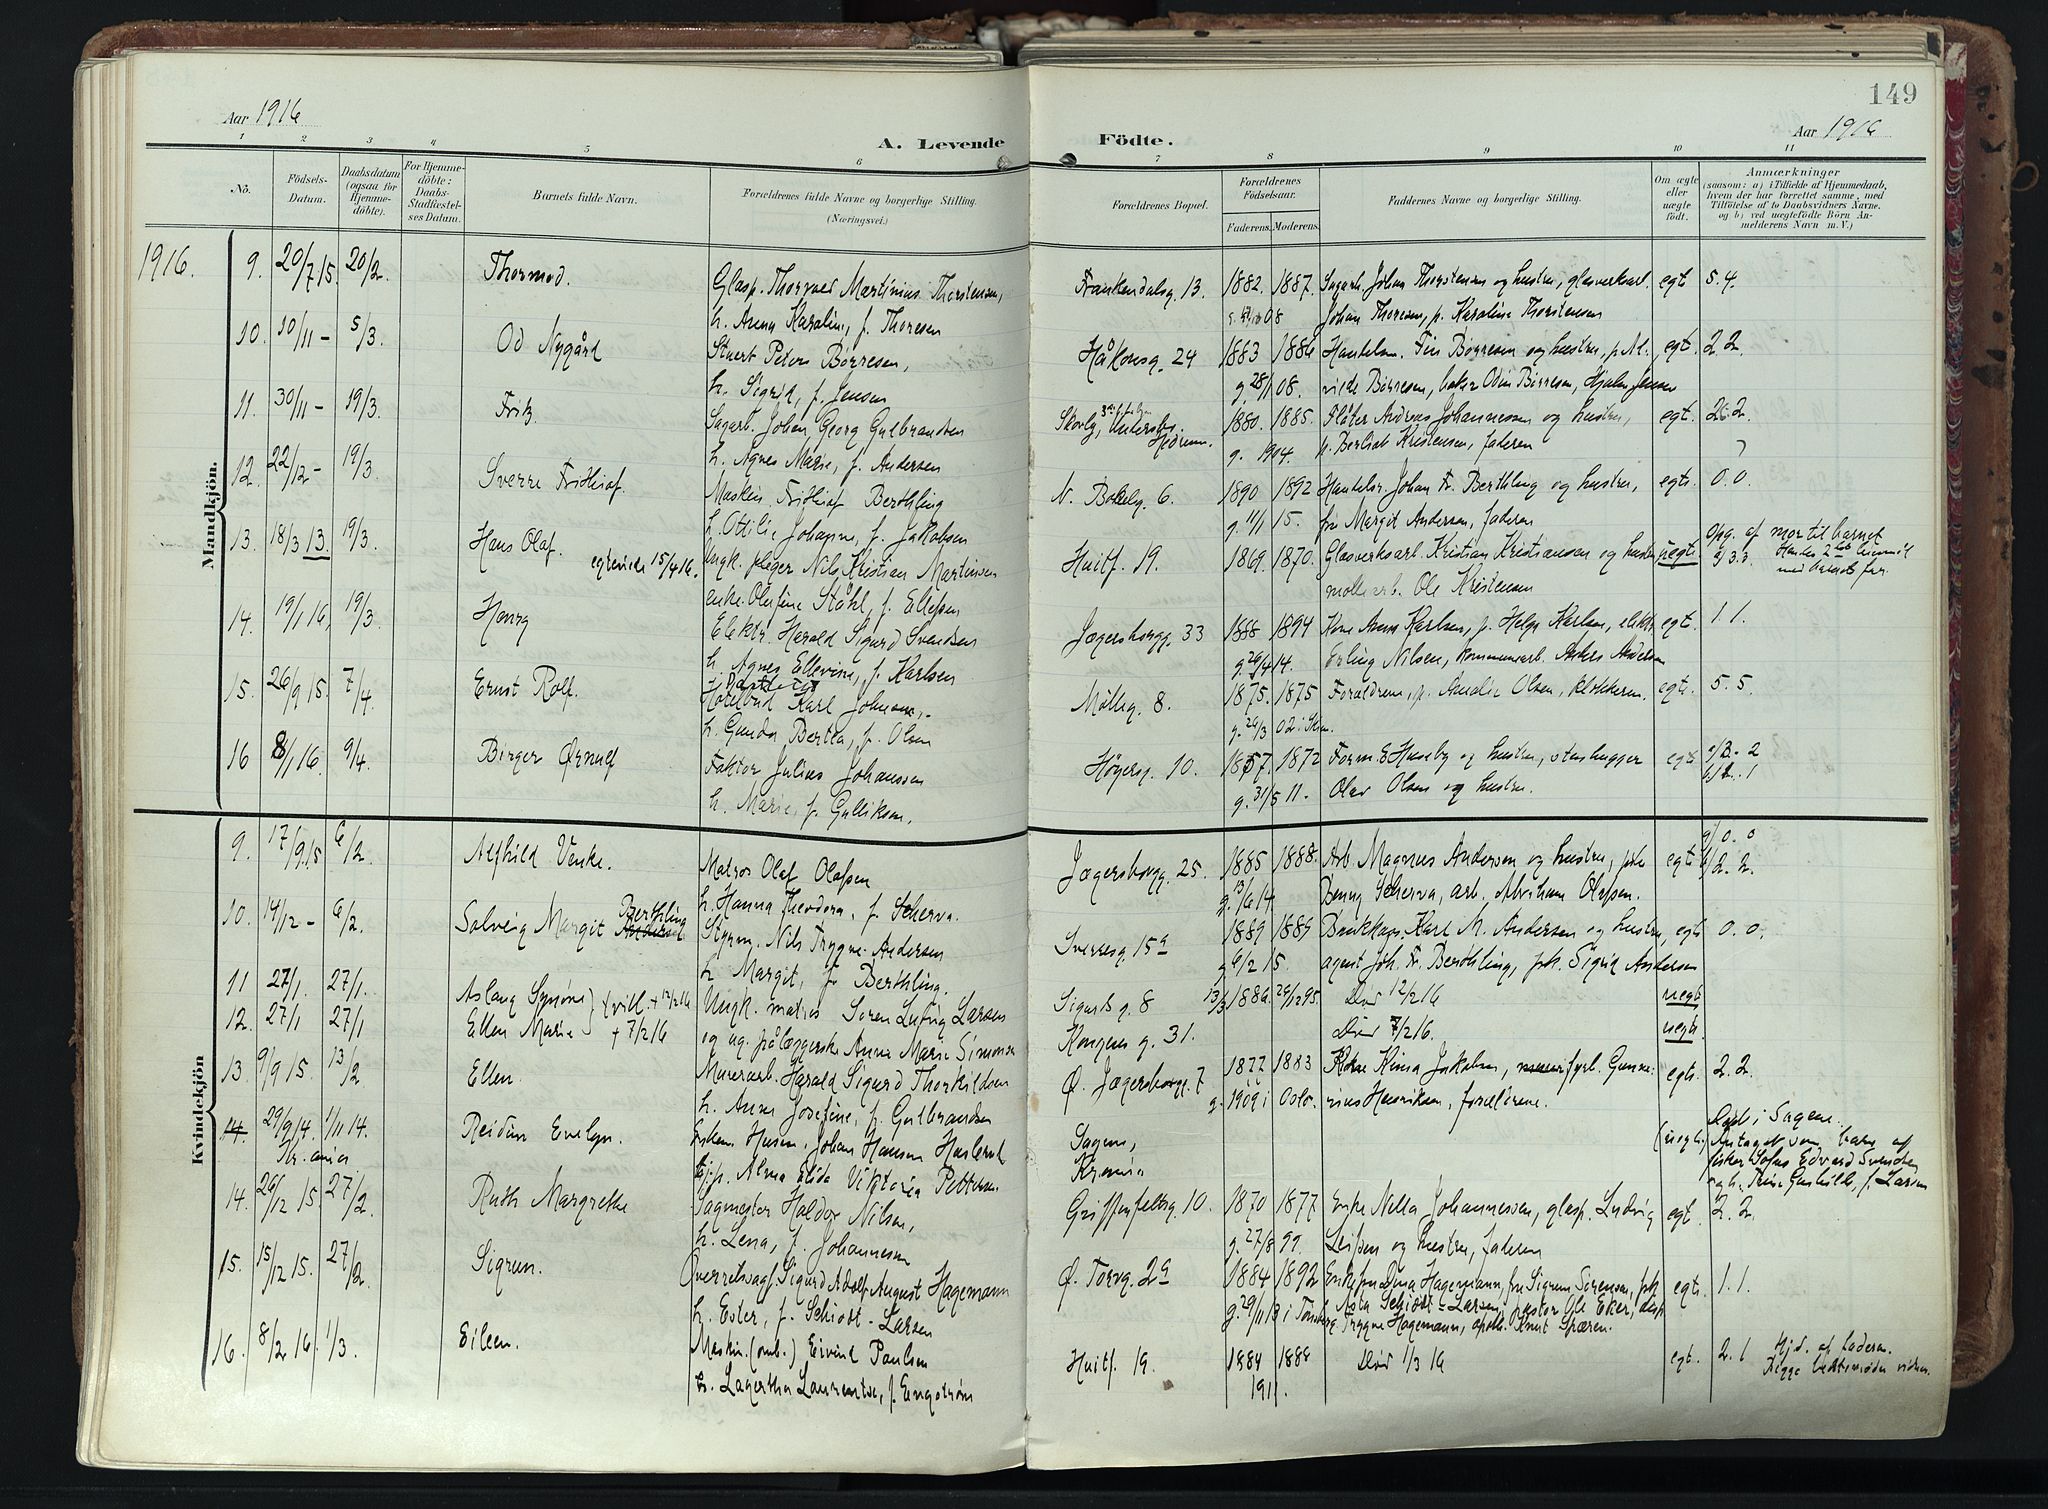 149
Aar 1916
Aar 1916
A. Levende Födte.
1 2 3 4 5 6 7 8 9 10 11
Nö.
Födsels-Datum.
Daabsdatum (ogsaa for Hjemmedöbte).
For Hjemmedöbte: Daabs-Stadfæstelses Datum.
Barnets fulde Navn.
Forældrenes fulde Navne og borgerlige Stilling. (Næringsvei.)
Forældrenes Bopæl.
Forældrenes Födselsaar. Faderens. Moderens.
Faddernes Navne og borgerlige Stilling.
Om ægte eller uægte födt.
Anmærkninger
(saasom: a) i Tilfælde af Hjemmedaab, hvem der har forrettet samme, med Tilföielse af to Daabsvidners Navne. og b) ved uægtefödte Börn Anmelderens Navn m. V.)
1916.
Mandkjön.
9. 20/7 15. 20/2. Thormod. Glasp. Thorvald Martinius Thorstensen, Frankendalsg. 13. 1882. 1887. Sagarb. Johan Thorstensen og hustru, glasverksarb. egt. 5.4.
h. Anna Karoline, f. Thoresen Johan Thoresen, p. Karoline Thorstensen
10. 10/11 – 5/3. Od Nygård Stuert Peter Börresen, Håkonsg. 24 1883 1886 Handelsm. Finn Börresen og hustru, egt. 2.2.
h. Sigrid, f. Jensen g. 28/1 08. Börresen, Odin Börresen, Hjalm. Jensen
11. 30/11 – 19/3. Fritz. Sagarb. Johan Georg Gulbrandsen Hedrum. 1880. 1885. Fløter Andreas Johannessen og hustru, egt. 2.
h. Agnes Marie, f. Andersen g. 1904. Kristensen, faderen
12. 22/12 – 19/3 Sverre Fridtiof. Maskin. Fridtiof Berthling N. Bøkelg. 6. 1890 1892 Handelsr. Johan Fr. Berthling og hustru, egte. 0.0.
h. Ottilie Johanne, f. Jakobsen g. 11/1 15. fru Margit Andersen, faderen
13. 18/3 13. 19/3. Hans Olaf. egteviede 15/4 16. Ungk. pleger Nils Kristian Martinsen Huitf. 19. 1869. 1870. Glasverksarb. Kristian Kristiansen og hustru, uegte opg. af mor til barnet
enke Olufine Ståhl, f. Ellefsen møllearb. Ole Kristensen 3.3.
14. 19/1 16, 19/3. Henry Elektr. Harald Sigurd Svendsen Jægersborgg. 33 1888 1894 Kone Anna Karlsen, p. Helga Karlsen, elektr. egt. 1.1.
h. Agnes Ellevine, f. Karlsen g. 26/4 14. Erling Nilsen, kommunearb. Andersen
15. 26/9 15. 7/4. Ernst Rolf. Karl Johnsen, Mølleg. 8. 1875. 1875 Forældrene, p. Amalie Olsen, klokkeren. egte. 5.5.
h. Gunda Bertea, f. Olsen g. 26/3 02 i Skien.
16 8/1 16. 9/4. Birger Ørnulf Faktor Julius Johanssen Høyersg. 10. 1857. 1872 Form. E Huseby og hustru, stenhugger egt. a/B. 2
h. Marie, f. Gulliksen. g. 31/5 11. Olav Olsen og hustru. b/B. 1
Kvindekjön
9. 17/9 15 6/2. Alfhild Venke. Matros Olaf Olafsen Jægersborgg. 25. 1885 1888. Arb. Magnus Andersen og hustru, pike egt. a/ 0.0 b/ 2.2.
h. Hanna Theodora, f. Scherva. g. 13/6 14 Benny Scherva, arb. Abraham Olafsen.
10. 14/12 – 6/2. Solveig Margit Berthling Andersen Styrm. Nils Trygve Andersen Sverresg. 15a 1889 1889 Bankkas. Karl M. Andersen og hustru, egte 0.0.
h. Margit, f. Berthling. g. 6/2 15. agent Joh. Fr. Berthling, pk. Sigrid Andersen
11 27/1. 27/1. Aslaug Synøve + 12/2 16 Ungk. matros Søren Ludvig Larsen Sigurds g. 8 1886. 29/12 95. Död 12/2 16 uegte
12. 27/1 27/1 Ellen Marie + 7/2 16 og ug. pålæggerske Anna Marie Simonsen Kongens g. 31. Död 7/2 16. uegte
13 9/9 15. 13/2 Ellen. Murerarb. Harald Sigurd Thorkildsen Ø. Jægersborgg. 7 1877 1883 Kone Kinna Jakobsen, fyrb. Gunne- egte. 2.2.
h. Anna Josefine, f. Gulbrandsen g. 1909 i Oslo. rius Henriksen, forældrene.
14. 29/9 14. 1/11 14. Reidun Evelyn. Johan Hansen Haslerud Sagene, (uegte) Döbt i Sagene.
Alma Elida Viktoria Pettersen Kr.ania Antaget som barn af fisker Sofus Edvard Svendsen og h. Trine Gunhilde, f. Larsen
14. 26/12 15 27/2. Ruth Margrethe Sagmester Haldor Nilsen, Griffenfeldsg. 10. 1870 1877 Enke Nella Johannessen, glasp. Ludvig egt. 2.2.
h. Lena, f. Johannesen g. 27/8 99. Leifsen og hustru, faderen
15. 15/12 15. 27/2. Sigrun. Overretssagf. Sigurd Adolf August Hagemann Ø. Torvg. 2a 1884 1892 Enkefru Dina Hagemann, fru Sigrun Sörensen, pk. egte. 1.1.
h. Ester, f. Schiödt-Larsen g. 29/11 13 i Tönsberg. Asta Schiödt-Larsen, pastor Ole Eker, disp. Trygve Hagemann, apoth. Knut Spæren.
16. 8/2 16. 1/3. Eileen. Maskin. (omb.) Eivind Paulsen Huitf. 19. 1884 1888 Död 1/3 16 egt. 2.1 Hjd. af faderen.
h. Lagertha Laurentze, f. Engstrøm 1911.